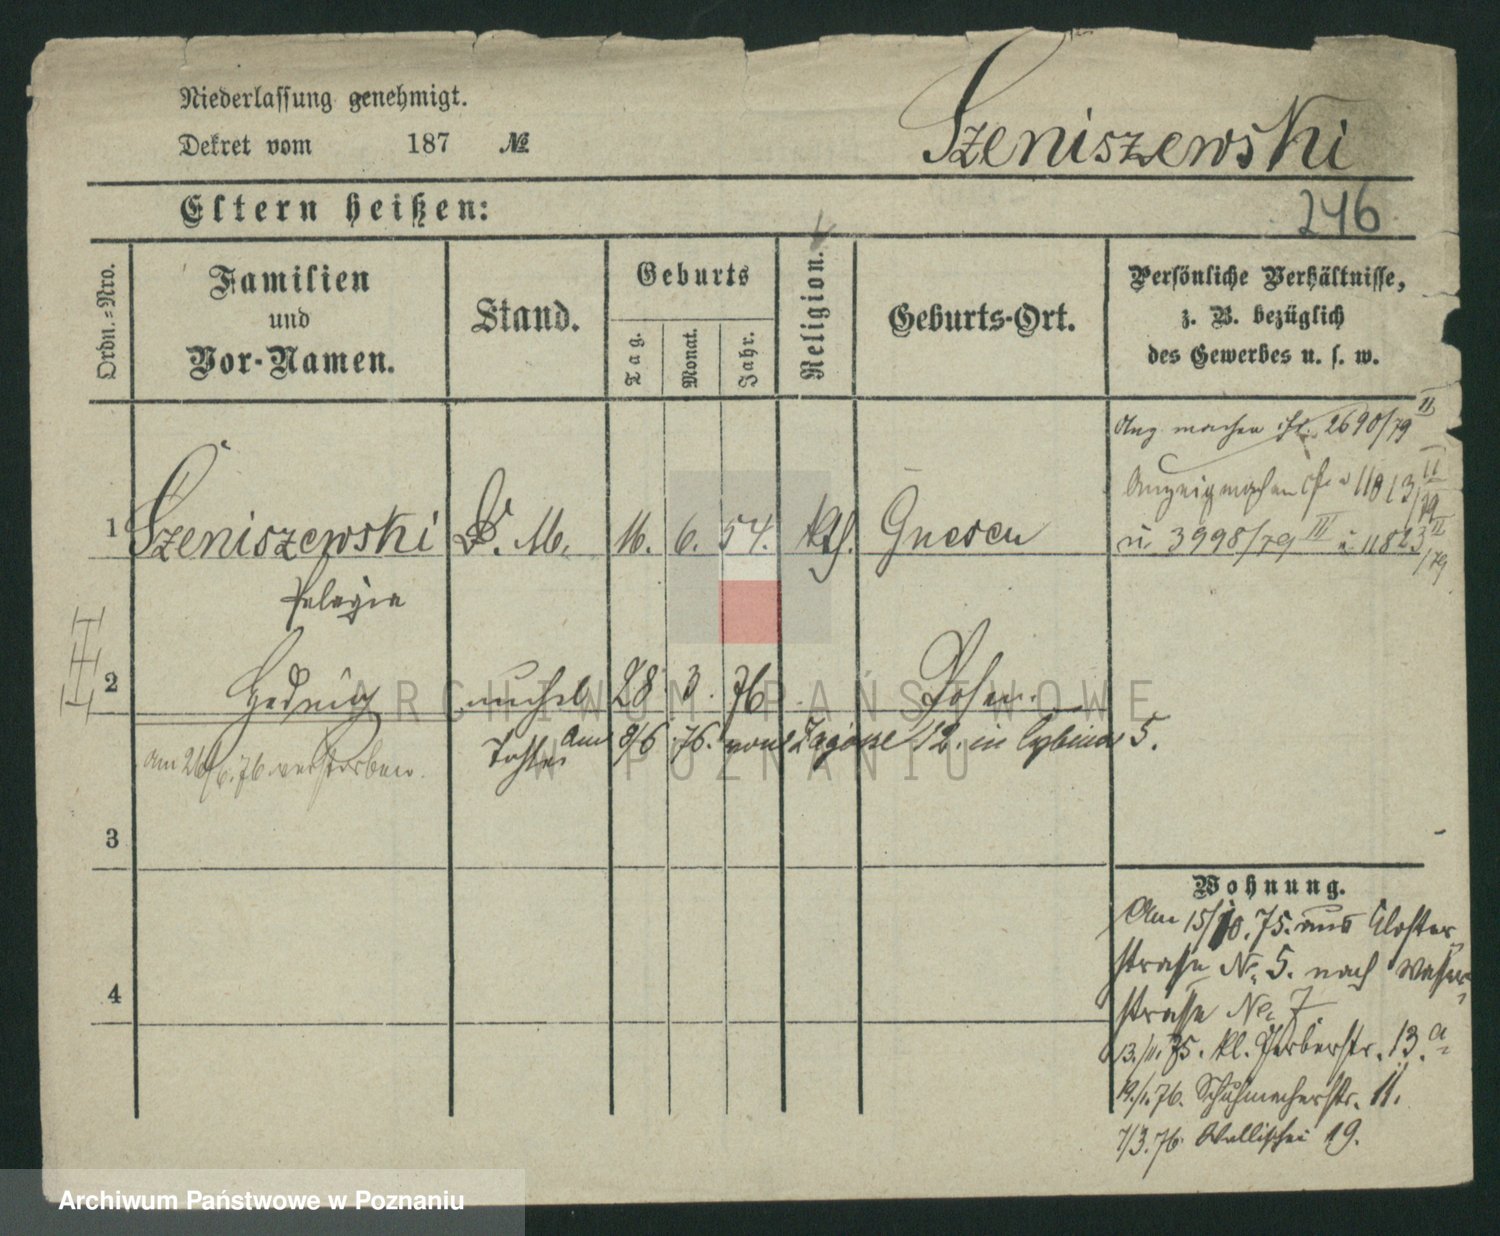 Niederlassung genehmigt.
Dekret vom 187 №
Szeniszewski
Eltern heißen:
246
Ordn.-Nro.
Familien
und
Vor-Namen.
Stand.
Geburts
Tag.
Monat.
Jahr.
Religion.
Geburts-Ort.
Persönliche Verhältnisse,
z. B. bezüglich
des Gewerbes u. s. w.
machen 2690/79 II
11813 II/79
1 Szeniszewski D. M. 11. 6. 54. kth. Gnesen
u. 3998/79 III u. 11823 II/79
Pelagia
2 Hedwig unehel. 28 3. 76 Posen.
Tochter Am 8/6 76. von Zagorze 12. in Cybina 5.
am 26/6. 76 verstorben.
3
4
Wohnung.
Am 15/10. 75. aus Kloster
strasse No. 5. nach Wasser-
strasse No. 7
13./11. 75. kl. Gerberstr. 13.a
19./1. 76. Schuhmacherstr. 11.
7/3. 76. Wallischei 19.
ARCHIWUM PAŃSTWOWE
W POZNANIU
Archiwum Państwowe w Poznaniu